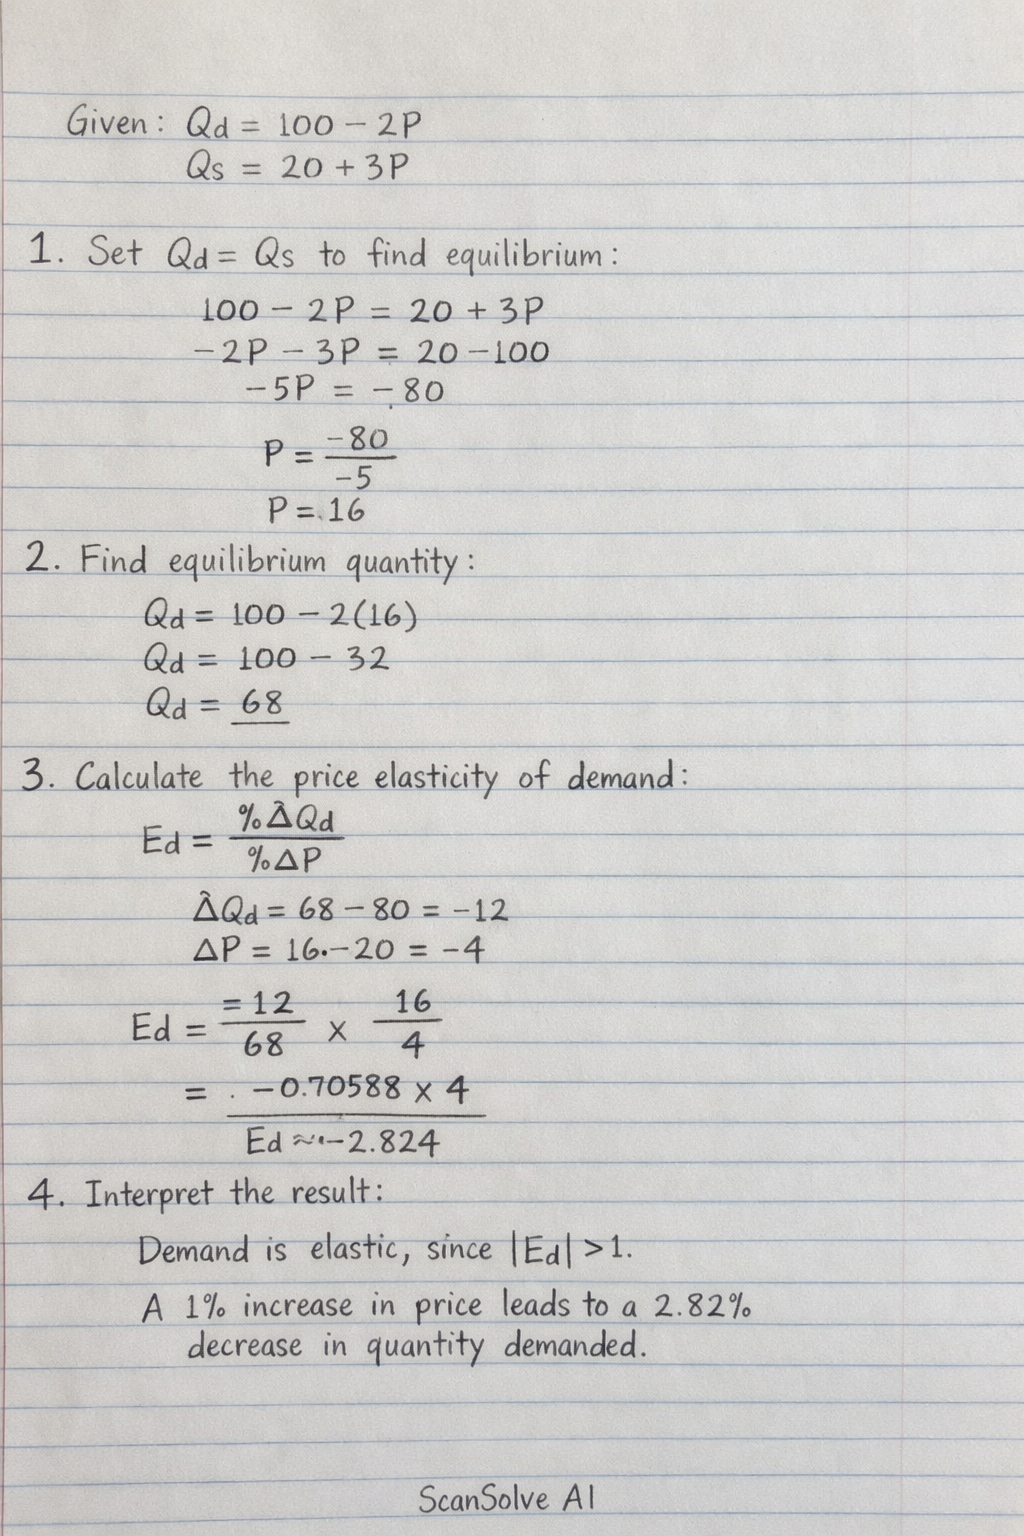 Given: Qd = 100 - 2P
Qs = 20 + 3P
1. Set Qd = Qs to find equilibrium:
100 - 2P = 20 + 3P
-2P - 3P = 20 - 100
-5P = -80
P = -80/-5
P = 16
2. Find equilibrium quantity:
Qd = 100 - 2(16)
Qd = 100 - 32
Qd = 68
3. Calculate the price elasticity of demand:
Ed = %ΔQd / %ΔP
ΔQd = 68 - 80 = -12
ΔP = 16.-20 = -4
Ed = =12/68 x 16/4
= -0.70588 x 4
Ed ≈ -2.824
4. Interpret the result:
Demand is elastic, since |Ed| > 1.
A 1% increase in price leads to a 2.82%
decrease in quantity demanded.
ScanSolve AI